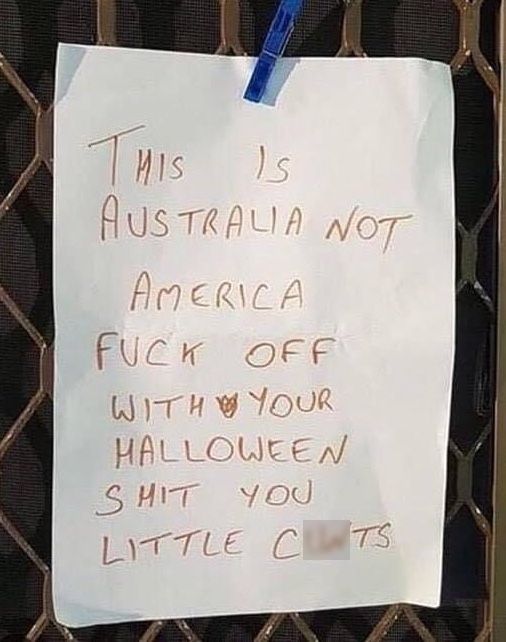 THIS IS
AUSTRALIA NOT
AMERICA
FUCK OFF
WITH YOUR
HALLOWEEN
SHIT YOU
LITTLE